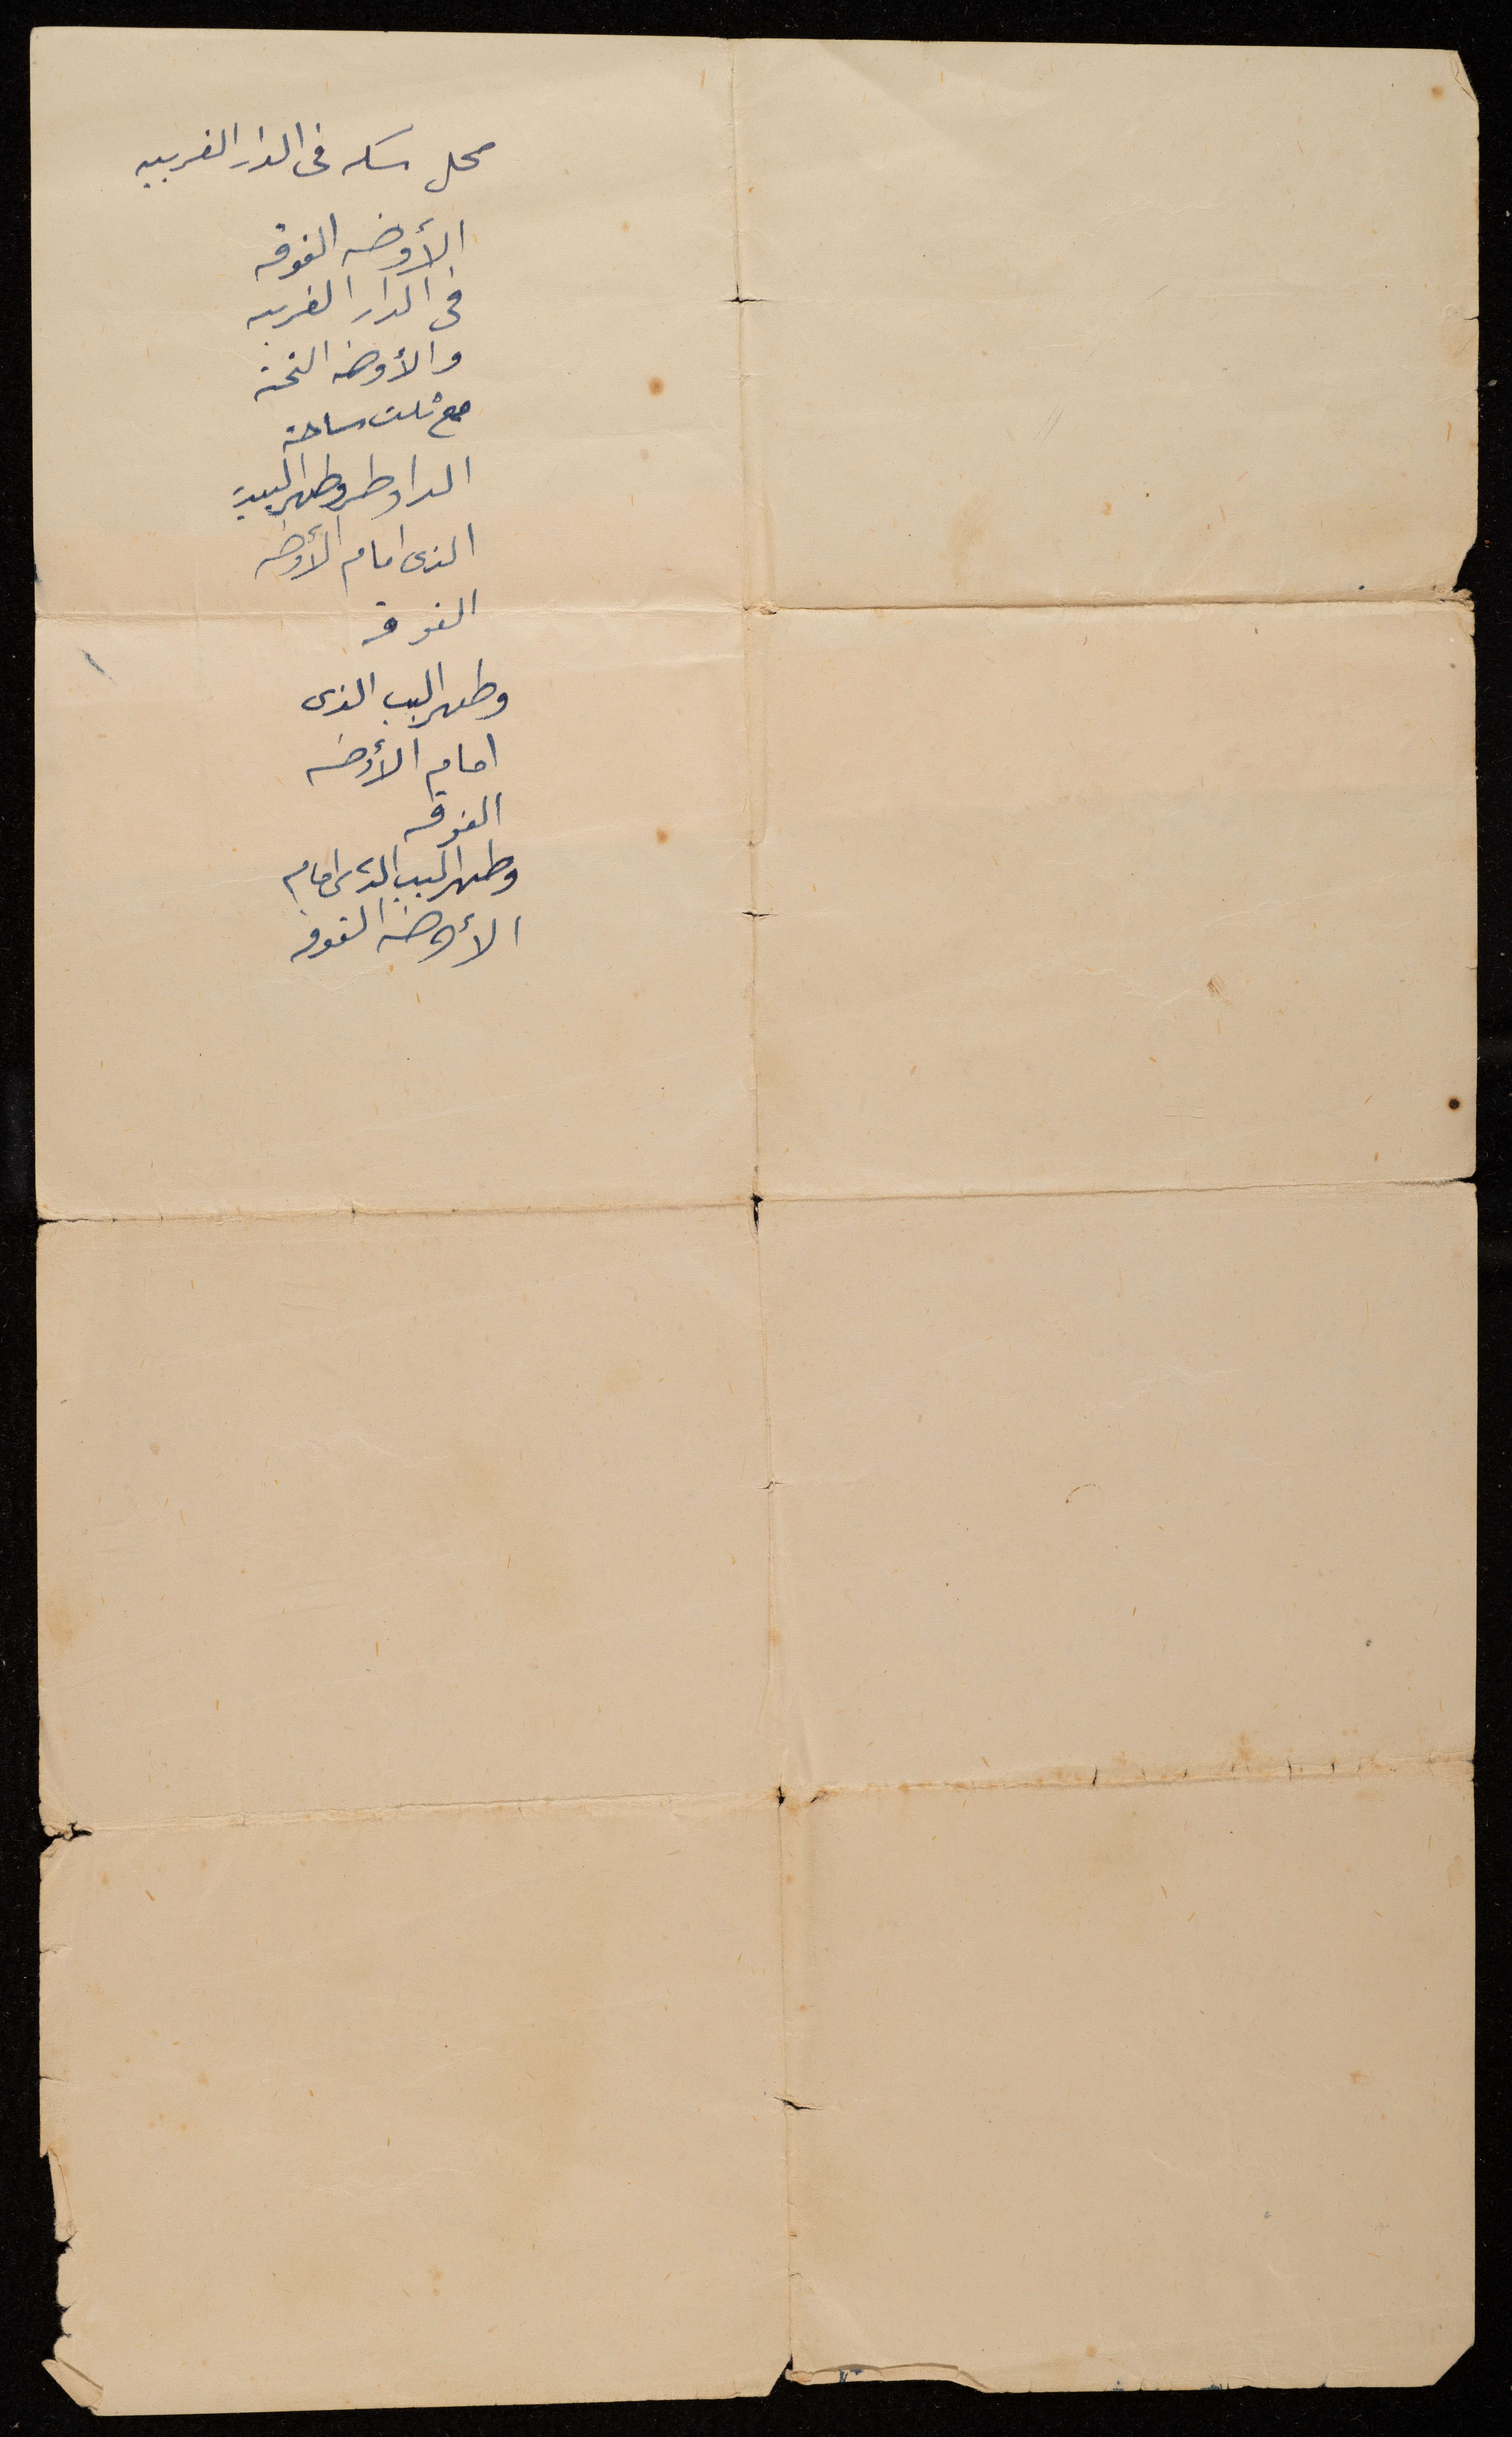 محل سكنه فى الدار الغربيه
الأوضه الفوقه
فى الدار الغربيه
والأوضه التحته
مع ثلث ساحة
الدار وظهر البيت
الذى امام الأوضه
الفوقه
وظهر البيت الذى
امام الأوضه
الفوقه
وظهر البيت الذى امام
الأوضه الفوقه